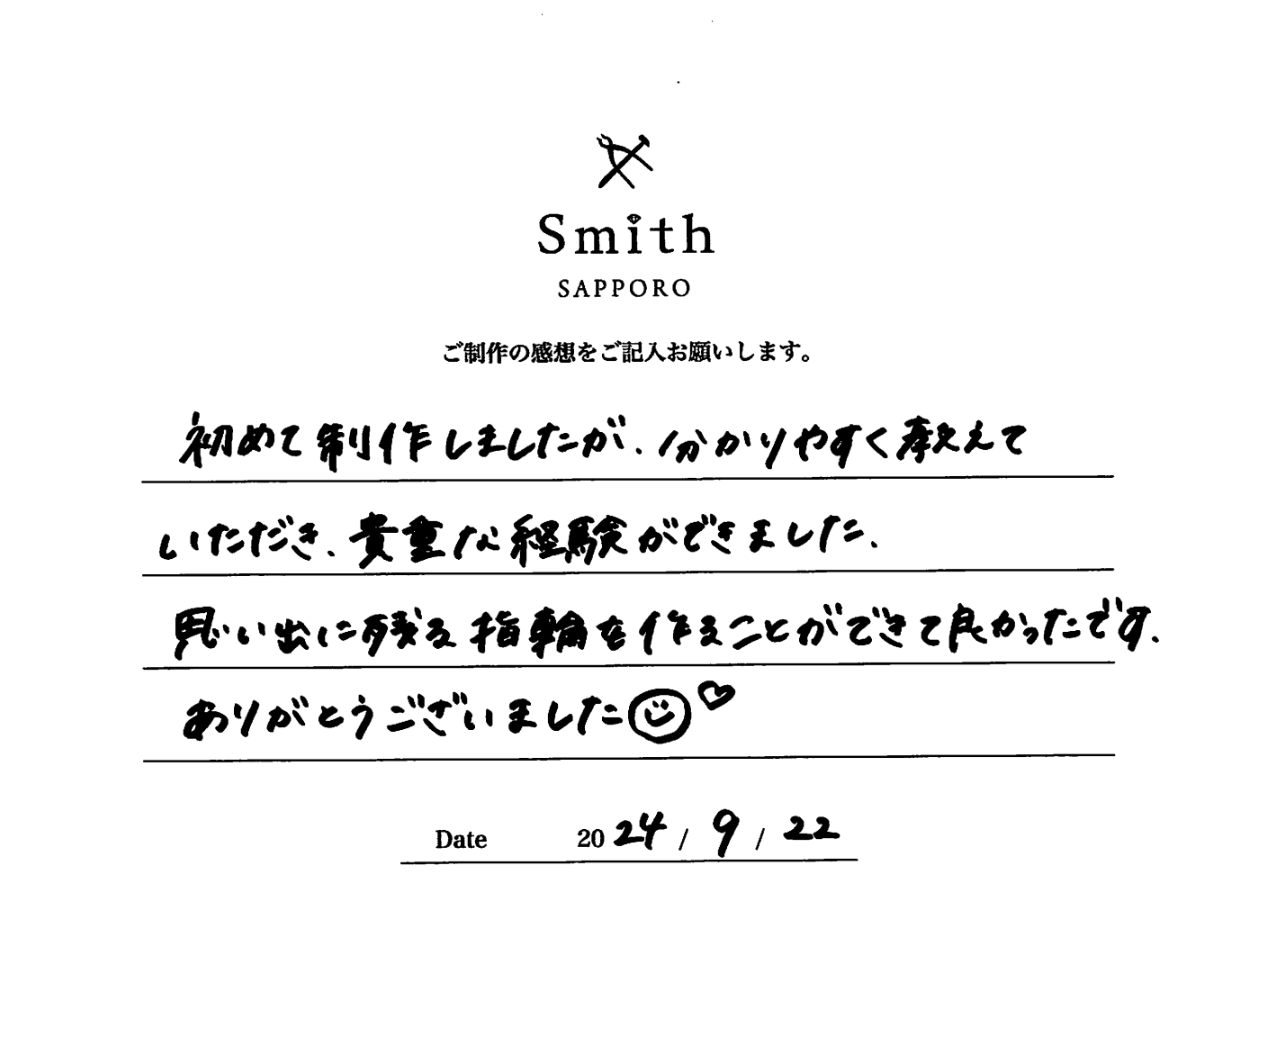 Smith
SAPPORO
ご制作の感想をご記入お願いします。
初めて制作しましたが、分かりやすく教えて
いただき、貴重な経験ができました、
思い出に残る指輪を作ることができて良かったです、
ありがとうございました☺♡
Date 2024 / 9 / 22